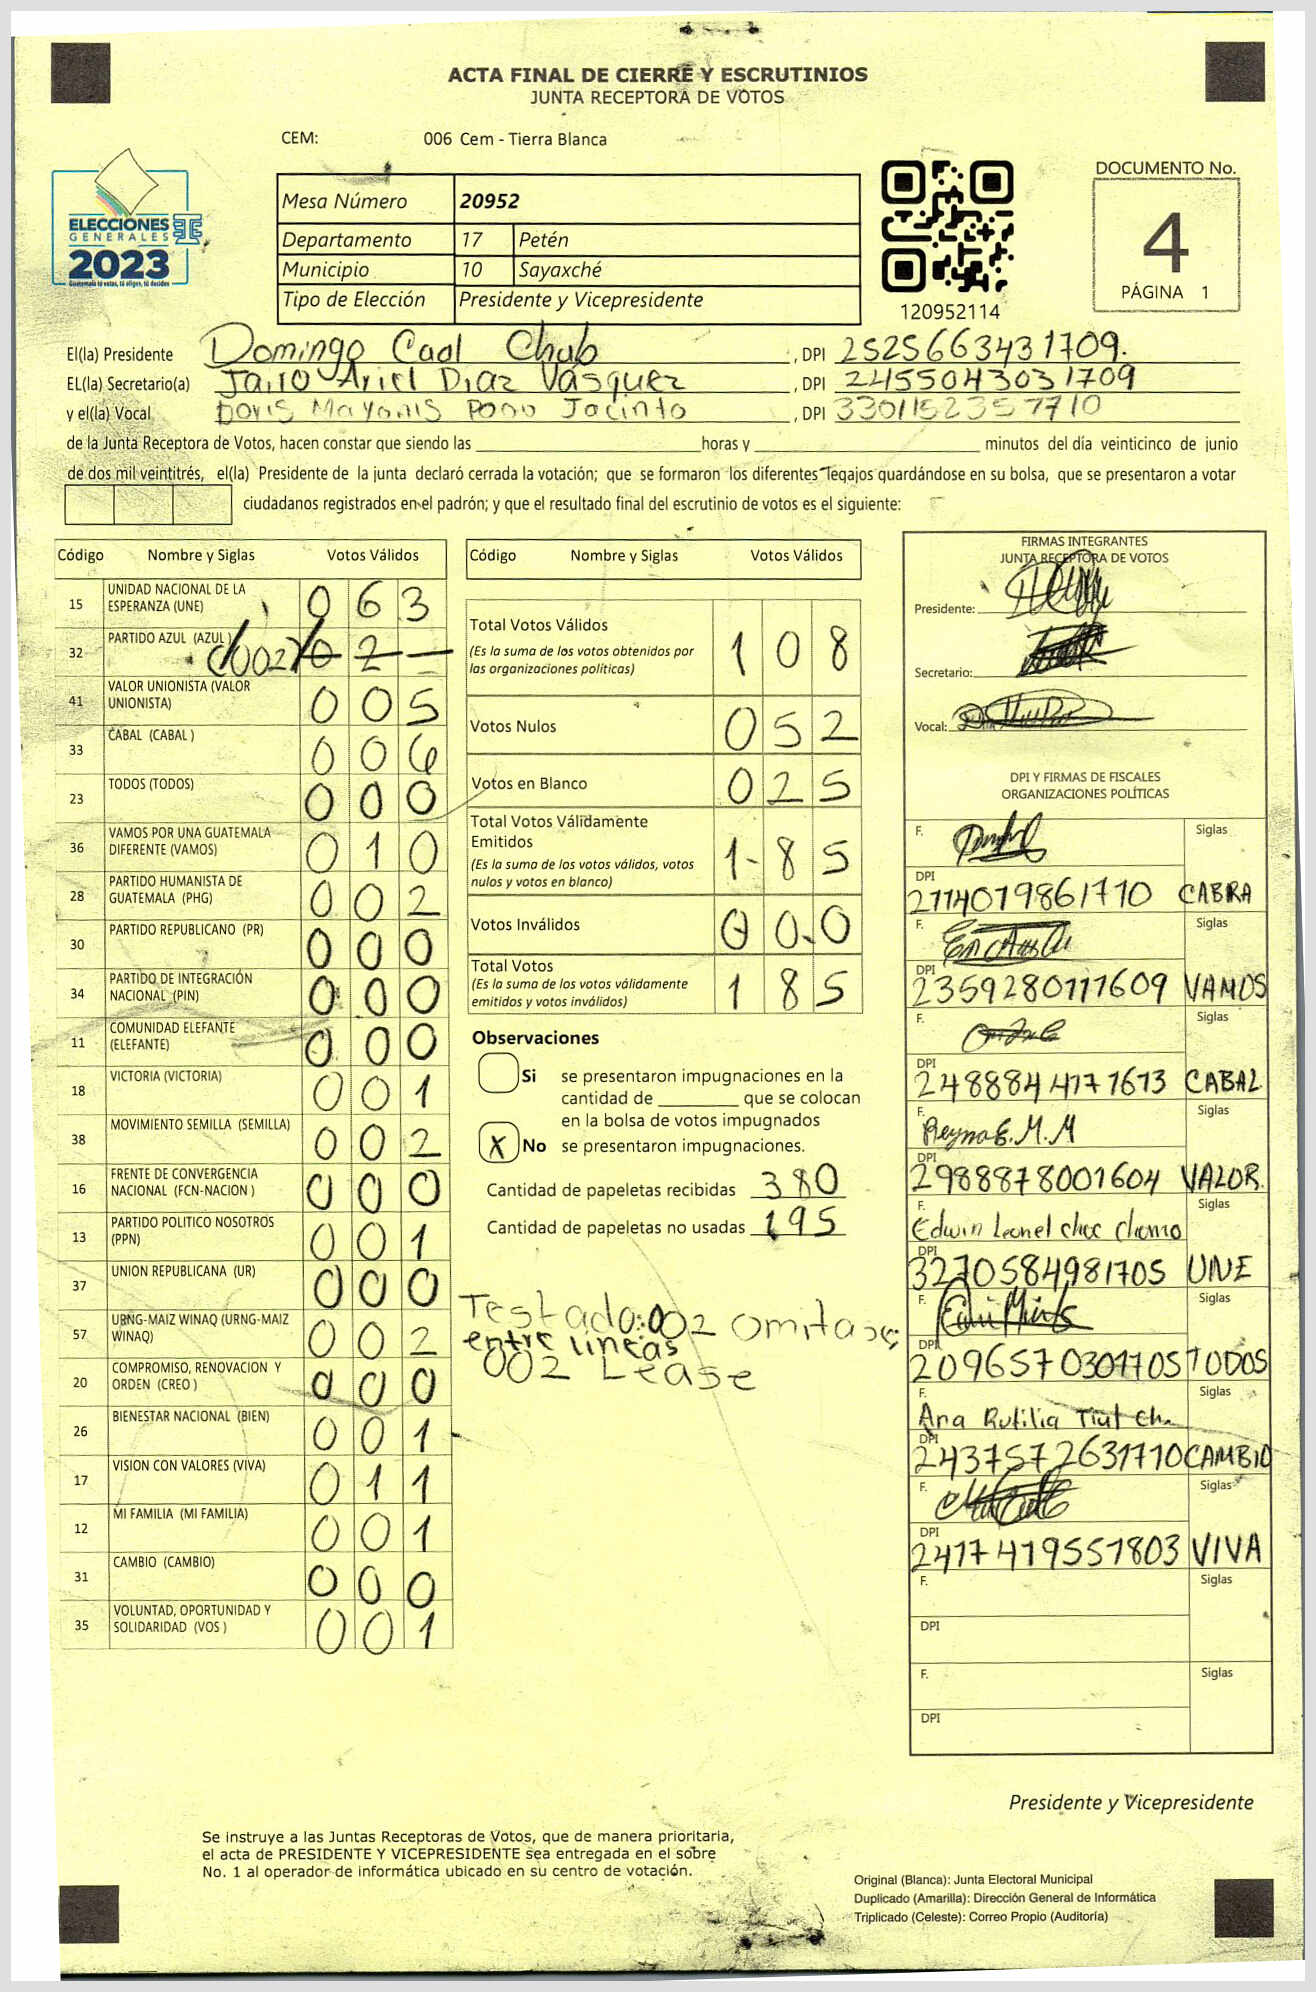 ACTA FINAL DE CIERRE Y ESCRUTINIOS
JUNTA RECEPTORA DE VOTOS
CEM: 006 Cem - Tierra Blanca
ELECCIONES
GENERALES
2023
Guatemala tú votas, tú eliges, tú decides
Mesa Número 20952
Departamento 17 Petén
Municipio 10 Sayaxché
Tipo de Elección Presidente y Vicepresidente
120952114
DOCUMENTO No.
4
PÁGINA 1
El(la) Presidente Domingo Caal Chub, DPI 2525663431709.
EL(la) Secretario(a) Jairo Ariel Diaz Vásquez, DPI 2455043031709
y el(la) Vocal Doris Mayonis Pono Jacinto, DPI 3301152357710
de la Junta Receptora de Votos, hacen constar que siendo las horas y minutos del día veinticinco de junio
de dos mil veintitrés, el(la) Presidente de la junta declaró cerrada la votación; que se formaron los diferentes legajos guardándose en su bolsa, que se presentaron a votar
ciudadanos registrados en el padrón; y que el resultado final del escrutinio de votos es el siguiente:
Código Nombre y Siglas Votos Válidos
15 UNIDAD NACIONAL DE LA ESPERANZA (UNE) 063
32 PARTIDO AZUL (AZUL) 002 02
41 VALOR UNIONISTA (VALOR UNIONISTA) 005
33 CABAL (CABAL ) 006
23 TODOS (TODOS) 000
36 VAMOS POR UNA GUATEMALA DIFERENTE (VAMOS) 010
28 PARTIDO HUMANISTA DE GUATEMALA (PHG) 002
30 PARTIDO REPUBLICANO (PR) 000
34 PARTIDO DE INTEGRACIÓN NACIONAL (PIN) 000
11 COMUNIDAD ELEFANTE (ELEFANTE) 000
18 VICTORIA (VICTORIA) 001
38 MOVIMIENTO SEMILLA (SEMILLA) 002
16 FRENTE DE CONVERGENCIA NACIONAL (FCN-NACION ) 000
13 PARTIDO POLITICO NOSOTROS (PPN) 001
37 UNION REPUBLICANA (UR) 000
57 URNG-MAIZ WINAQ (URNG-MAIZ WINAQ) 002
20 COMPROMISO, RENOVACION Y ORDEN (CREO ) 000
26 BIENESTAR NACIONAL (BIEN) 001
17 VISION CON VALORES (VIVA) 011
12 MI FAMILIA (MI FAMILIA) 001
31 CAMBIO (CAMBIO) 000
35 VOLUNTAD, OPORTUNIDAD Y SOLIDARIDAD (VOS ) 001
Código Nombre y Siglas Votos Válidos
Total Votos Válidos 108
(Es la suma de los votos obtenidos por
las organizaciones políticas)
Votos Nulos 052
Votos en Blanco 025
Total Votos Válidamente
Emitidos 1-85
(Es la suma de los votos válidos, votos
nulos y votos en blanco)
Votos Inválidos 000
Total Votos 185
(Es la suma de los votos válidamente
emitidos y votos inválidos)
Observaciones
Si se presentaron impugnaciones en la
cantidad de que se colocan
en la bolsa de votos impugnados
X No se presentaron impugnaciones.
Cantidad de papeletas recibidas 380
Cantidad de papeletas no usadas 195
Testado:002 omitase;
entre lineas
002 Lease
FIRMAS INTEGRANTES
JUNTA RECEPTORA DE VOTOS
Presidente:
Secretario:
Vocal:
DPI Y FIRMAS DE FISCALES
ORGANIZACIONES POLÍTICAS
F. Siglas
DPI
2114019861710 CABRA
F. Siglas
DPI
2359280117609 VAMOS
F. Siglas
DPI
2488844171613 CABAL
F. Reyna E. M. M Siglas
DPI
2988878001604 VALOR.
F. Siglas
Edwin Leonel choc chomo
DPI
3270584981705 UNE
F. Siglas
DPI
2096570301705 TODOS
F. Siglas
Ana Rutilia Tiul Ch.
DPI
2437572631710 CAMBIO
F. Siglas
DPI
2417419551803 VIVA
F. Siglas
DPI
F. Siglas
DPI
Presidente y Vicepresidente
Se instruye a las Juntas Receptoras de Votos, que de manera prioritaria,
el acta de PRESIDENTE Y VICEPRESIDENTE sea entregada en el sobre
No. 1 al operador de informática ubicado en su centro de votación.
Original (Blanca): Junta Electoral Municipal
Duplicado (Amarilla): Dirección General de Informática
Triplicado (Celeste): Correo Propio (Auditoría)